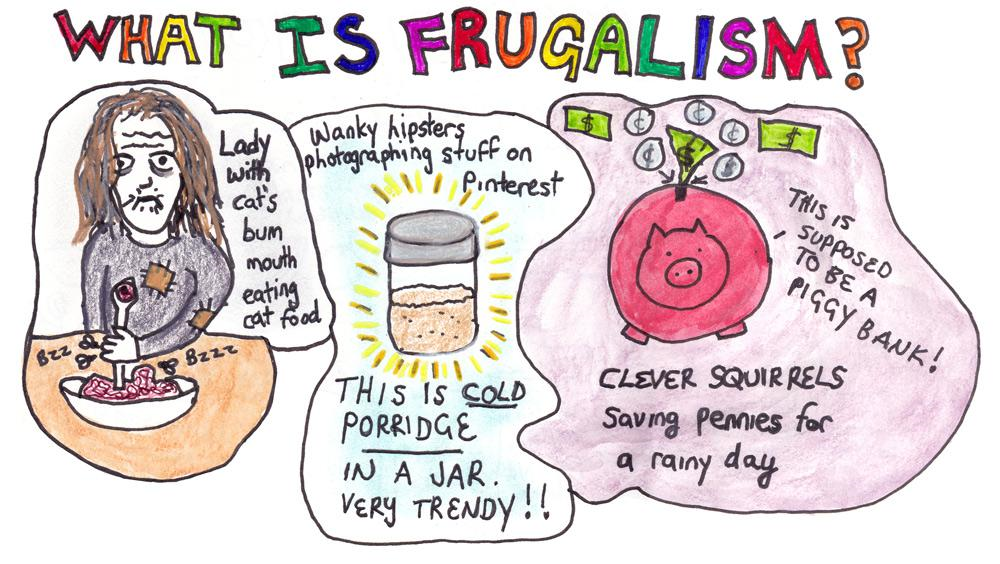 WHAT IS FRUGALISM?
Lady
with
cat's
bum
mouth
eating
cat food
Bzz
Bzzz
Wanky hipsters
photographing stuff on
Pinterest
THIS IS COLD
PORRIDGE
IN A JAR.
VERY TRENDY!!
$ ¢ ¢ $
¢ $ $
THIS IS
SUPPOSED
TO BE A
PIGGY BANK!
CLEVER SQUIRRELS
saving pennies for
a rainy day